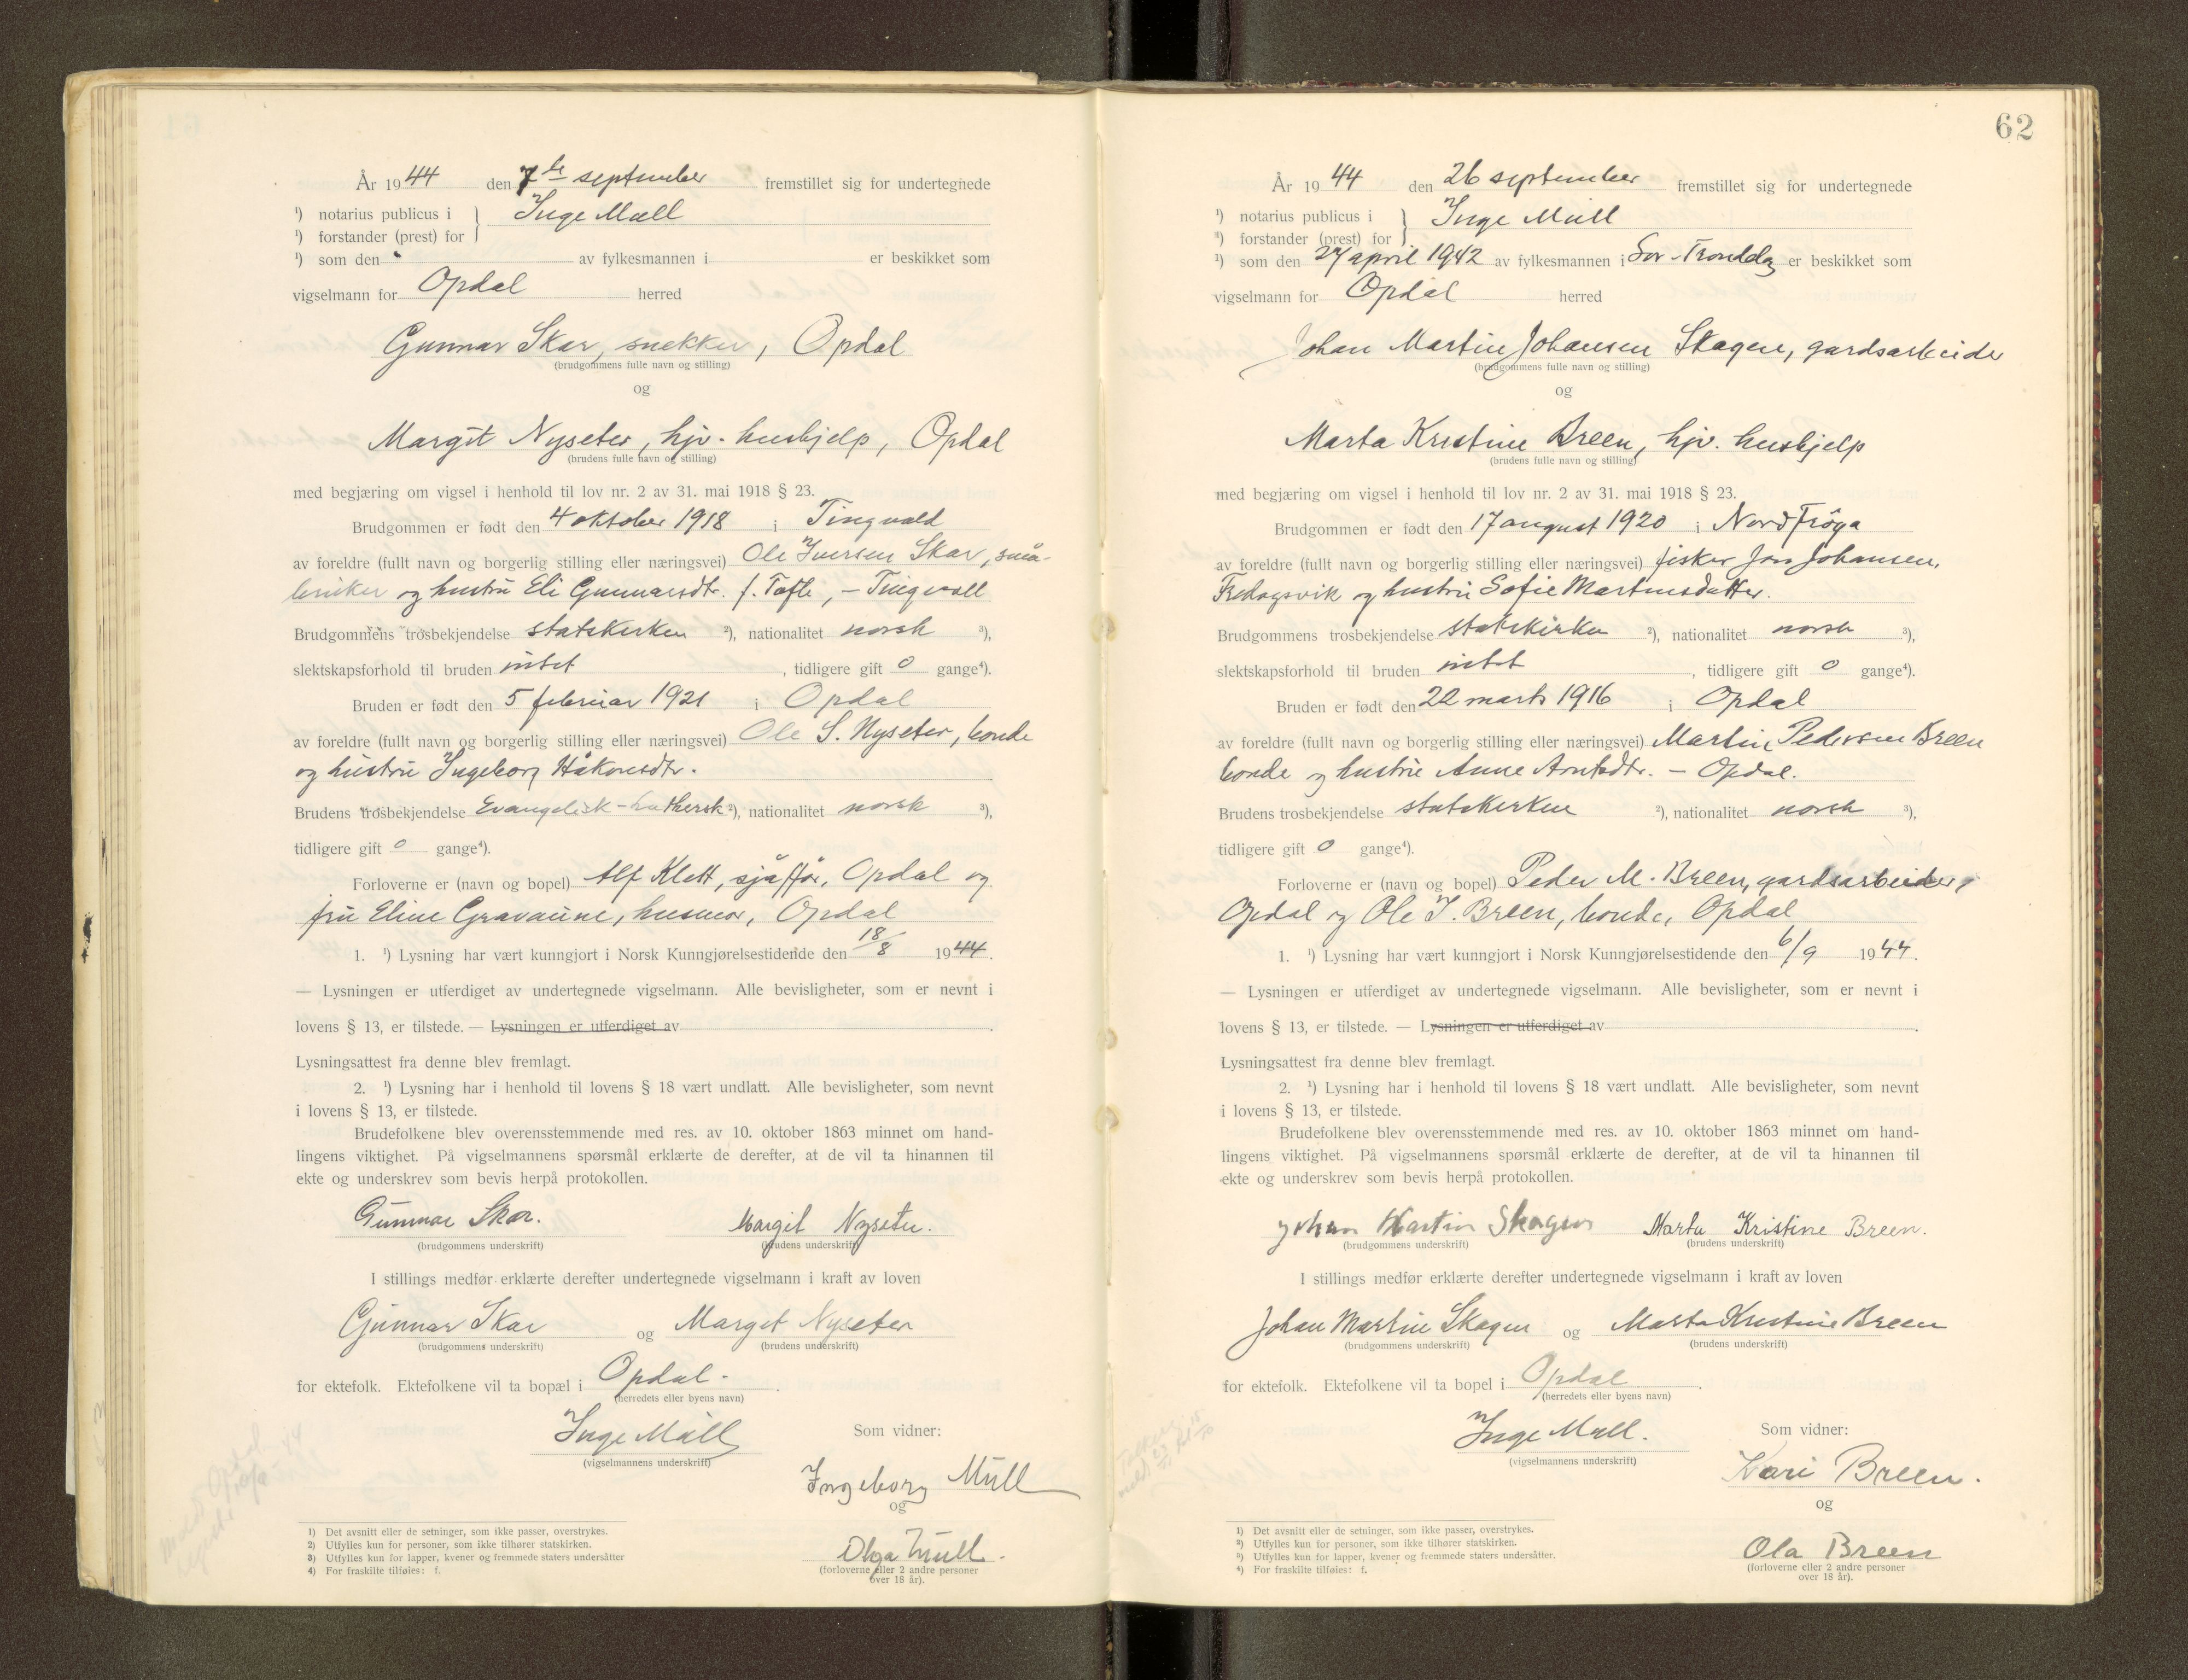 År 1944 den 7de september fremstillet sig for undertegnede
¹) notarius publicus i } Inge Mull
¹) forstander (prest) for
¹) som den av fylkesmannen i er beskikket som
vigselmann for Opdal herred
Gunnar Skar, snekker, Opdal
(brudgommens fulle navn og stilling)
og
Margit Nyseter, hjv. hushjelp, Opdal
(brudens fulle navn og stilling)
med begjæring om vigsel i henhold til lov nr. 2 av 31. mai 1918 § 23.
Brudgommen er født den 4 oktober 1918 i Tingvold
av foreldre (fullt navn og borgerlig stilling eller næringsvei) Ole Iversen Skar, små-
bruker og hustru Eli Gunnarsdtr. f. Tøfte, – Tingvoll
Brudgommens trosbekjendelse statskirken ²), nationalitet norsk ³),
slektskapsforhold til bruden intet , tidligere gift 0 gange⁴).
Bruden er født den 5 februar 1921 i Opdal
av foreldre (fullt navn og borgerlig stilling eller næringsvei) Ole S. Nyseter, bonde
og hustru Ingeborg Håkonsdtr.
Brudens trosbekjendelse Evangelisk-luthersk ²), nationalitet norsk ³),
tidligere gift 0 gange⁴).
Forloverne er (navn og bopel) Alf Klett, sjåffør, Opdal og
fru Eline Gravaune, husmor, Opdal
1. ¹) Lysning har vært kunngjort i Norsk Kunngjørelsestidende den 18/8 1944.
— Lysningen er utferdiget av undertegnede vigselmann. Alle bevisligheter, som er nevnt i
lovens § 13, er tilstede. — Lysningen er utferdiget av .
Lysningsattest fra denne blev fremlagt.
2. ¹) Lysning har i henhold til lovens § 18 vært undlatt. Alle bevisligheter, som nevnt
i lovens § 13, er tilstede.
Brudefolkene blev overensstemmende med res. av 10. oktober 1863 minnet om hand-
lingens viktighet. På vigselmannens spørsmål erklærte de derefter, at de vil ta hinannen til
ekte og underskrev som bevis herpå protokollen.
Gunnar Skar. Margit Nyseter.
(brudgommens underskrift) (brudens underskrift)
I stillings medfør erklærte derefter undertegnede vigselmann i kraft av loven
Gunnar Skar og Margit Nyseter
(brudgommens underskrift) (brudens underskrift)
for ektefolk. Ektefolkene vil ta bopæl i Opdal.
(herredets eller byens navn)
Inge Mull Som vidner:
(vigselmannens underskrift)
Ingeborg Mull
og
Olga Mull.
(forloverne eller 2 andre personer
over 18 år).
1) Det avsnitt eller de setninger, som ikke passer, overstrykes.
2) Utfylles kun for personer, som ikke tilhører statskirken.
3) Utfylles kun for lapper, kvener og fremmede staters undersåtter
4) For fraskilte tilføies: f.
62
År 1944 den 26 september fremstillet sig for undertegnede
¹) notarius publicus i } Inge Mull
¹) forstander (prest) for
¹) som den 27 april 1942 av fylkesmannen i Sør-Trøndelag er beskikket som
vigselmann for Opdal herred
Johan Martin Johansen Skagen, gardsarbeider
(brudgommens fulle navn og stilling)
og
Marta Kristine Breen, hjv. hushjelp
(brudens fulle navn og stilling)
med begjæring om vigsel i henhold til lov nr. 2 av 31. mai 1918 § 23.
Brudgommen er født den 17 august 1920 i Nord Frøya
av foreldre (fullt navn og borgerlig stilling eller næringsvei) fisker Jon Johansen,
og hustru Sofie Martinsdatter.
Brudgommens trosbekjendelse statskirken ²), nationalitet norsk ³),
slektskapsforhold til bruden intet , tidligere gift 0 gange⁴).
Bruden er født den 22 marts 1916 i Opdal
av foreldre (fullt navn og borgerlig stilling eller næringsvei) Martin Pedersen Breen
bonde og hustru Anne Arntsdtr. – Opdal.
Brudens trosbekjendelse statskirken ²), nationalitet norsk ³),
tidligere gift 0 gange⁴).
Forloverne er (navn og bopel) Peder M. Breen, gardsarbeider,
Opdal og Ole J. Breen, bonde, Opdal
1. ¹) Lysning har vært kunngjort i Norsk Kunngjørelsestidende den 6/9 1944.
— Lysningen er utferdiget av undertegnede vigselmann. Alle bevisligheter, som er nevnt i
lovens § 13, er tilstede. — Lysningen er utferdiget av .
Lysningsattest fra denne blev fremlagt.
2. ¹) Lysning har i henhold til lovens § 18 vært undlatt. Alle bevisligheter, som nevnt
i lovens § 13, er tilstede.
Brudefolkene blev overensstemmende med res. av 10. oktober 1863 minnet om hand-
lingens viktighet. På vigselmannens spørsmål erklærte de derefter, at de vil ta hinannen til
ekte og underskrev som bevis herpå protokollen.
Johan Martin Skagen Marta Kristine Breen.
(brudgommens underskrift) (brudens underskrift)
I stillings medfør erklærte derefter undertegnede vigselmann i kraft av loven
Johan Martin Skagen og Marta Kristine Breen
(brudgommens underskrift) (brudens underskrift)
for ektefolk. Ektefolkene vil ta bopel i Opdal.
(herredets eller byens navn)
Inge Mull. Som vidner:
(vigselmannens underskrift)
Kari Breen.
og
Ola Breen
(forloverne eller 2 andre personer
over 18 år).
1) Det avsnitt eller de setninger, som ikke passer, overstrykes.
2) Utfylles kun for personer, som ikke tilhører statskirken.
3) Utfylles kun for lapper, kvener og fremmede staters undersåtter.
4) For fraskilte tilføies: f.